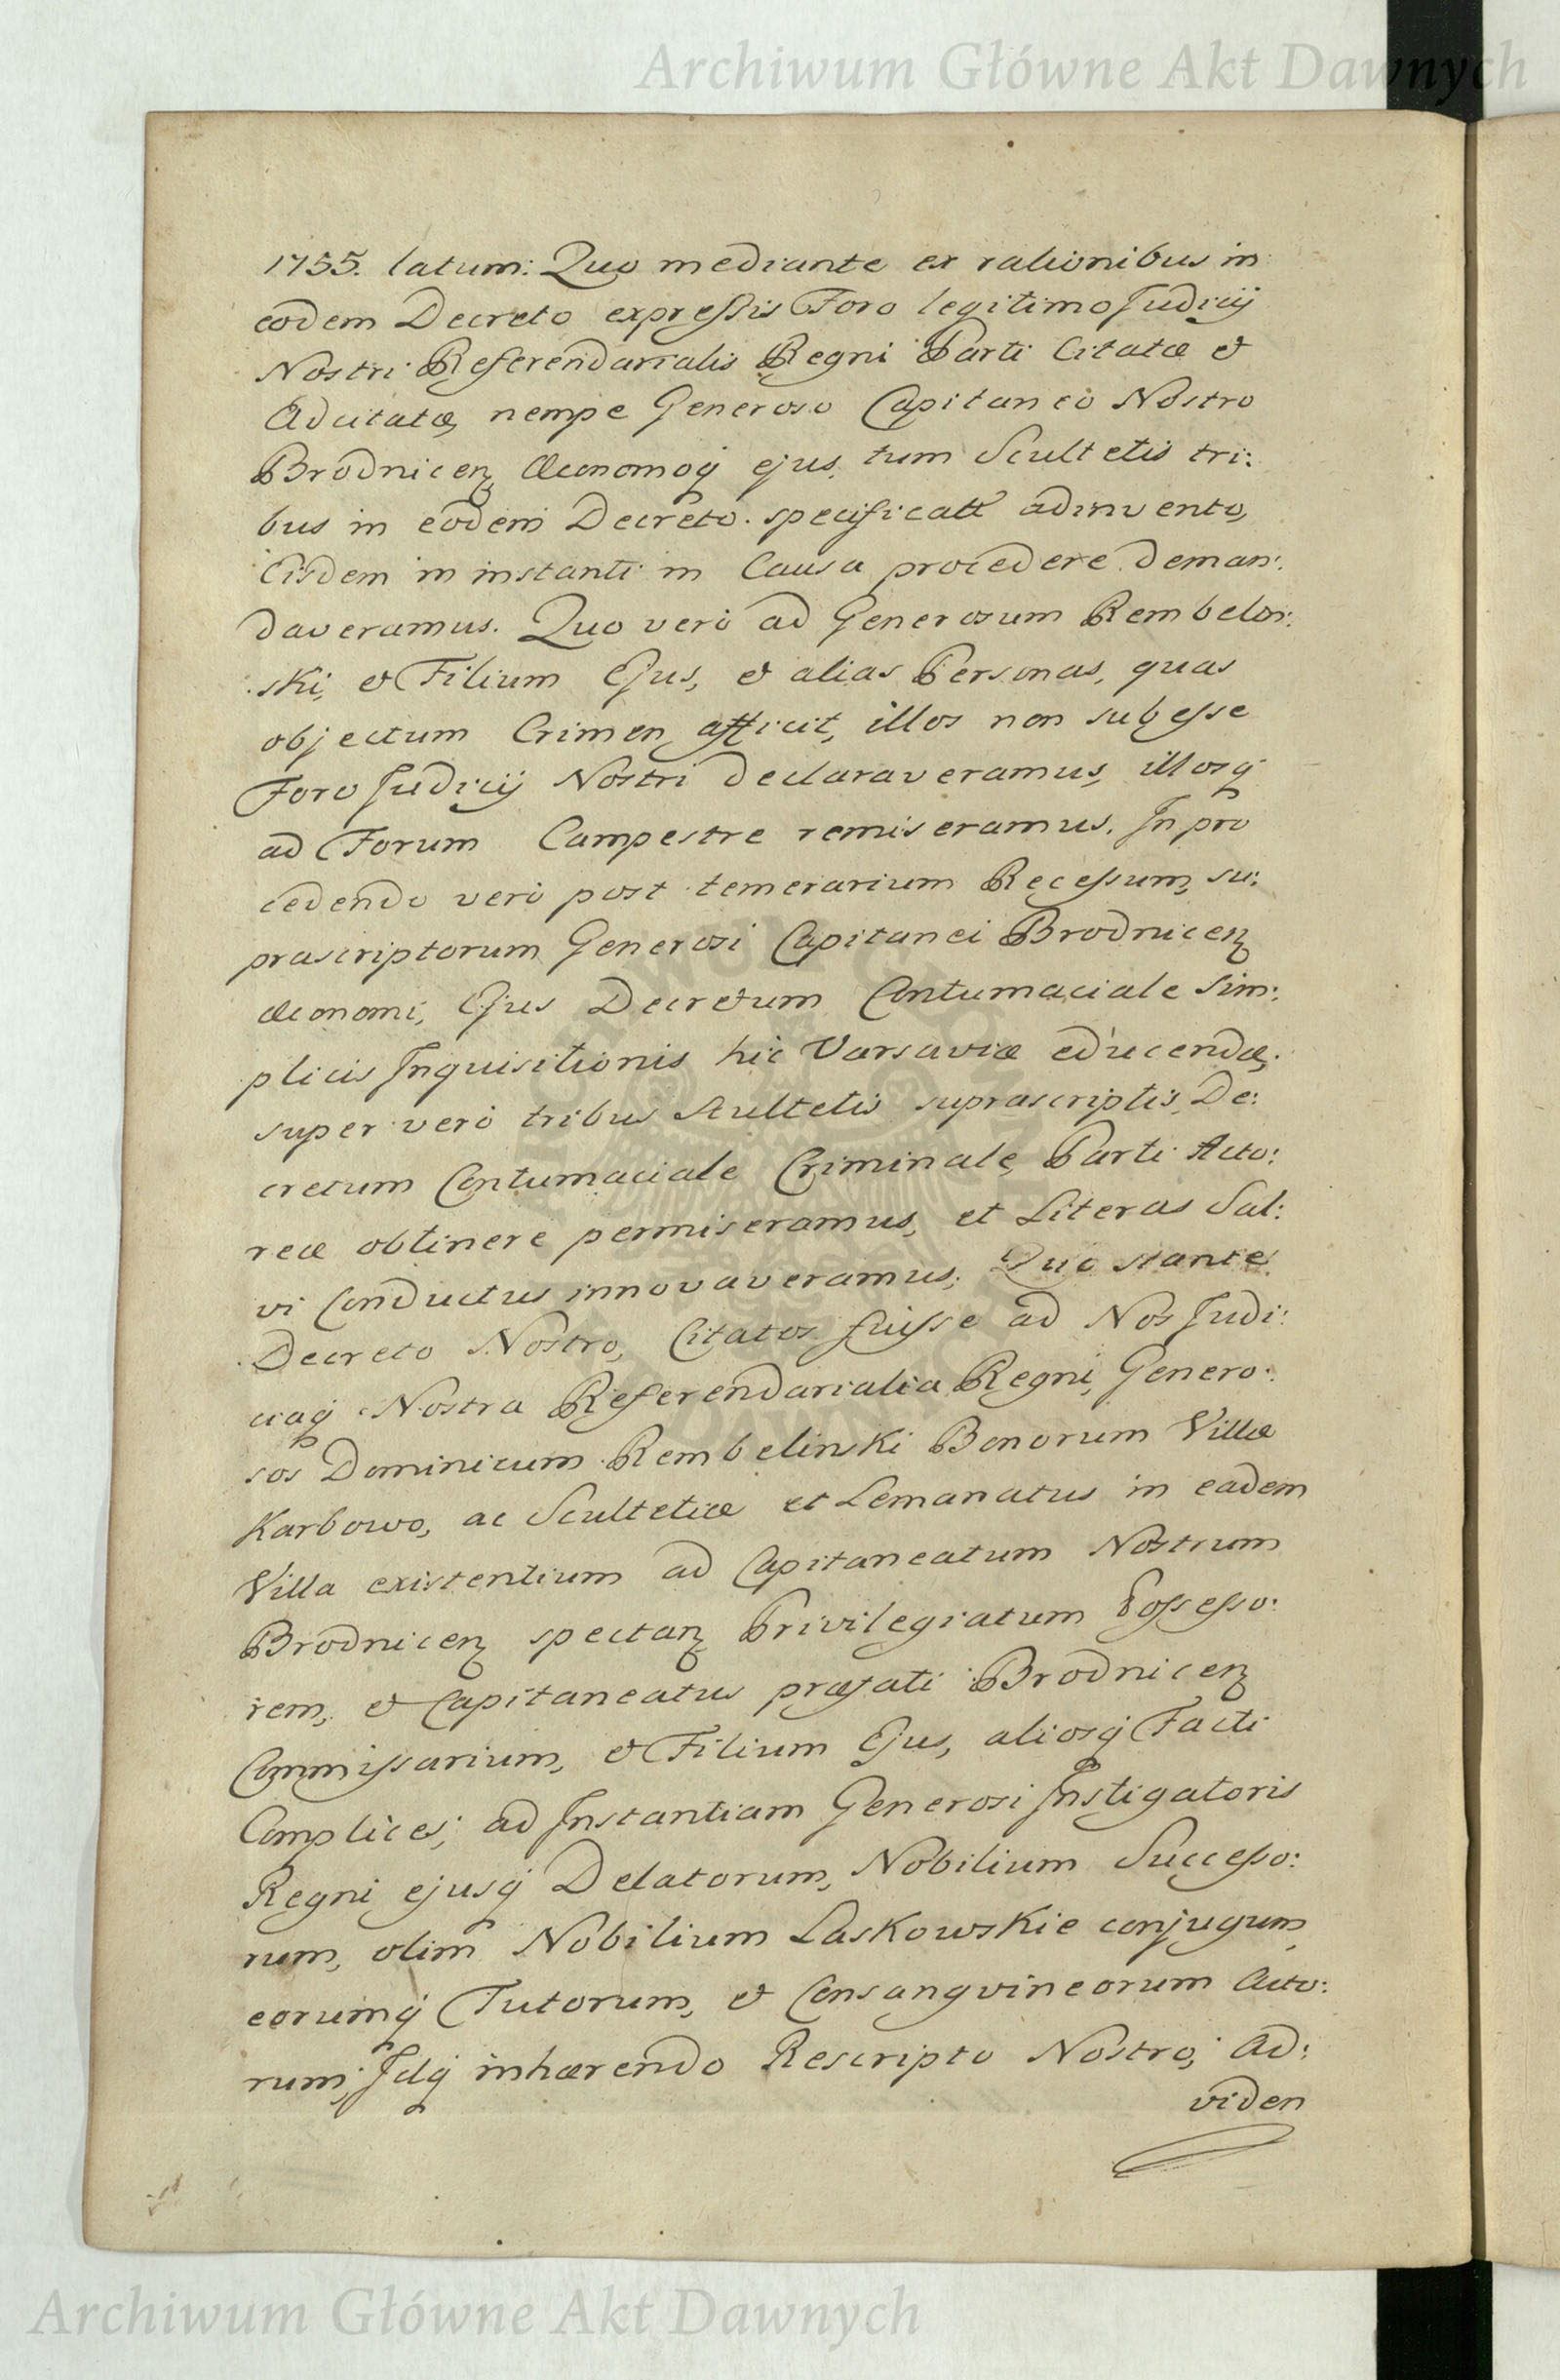 Archiwum Główne Akt Dawnych
1755. latum: Quo mediante ex rationibus in
eodem Decreto expressis Foro legitimo Judicij
Nostri Referendarialis Regni Parti Citatæ et
Adcitatæ, nempe Generoso Capitaneo Nostro
Brodnicen, Œconomoq ejus, tum Scultetis tri:
bus in eodem Decreto specificatt adinvento,
Eisdem in instanti in Causa procedere deman:
daveramus. Quo verò ad Generosum Rembelin:
ski, et Filium Ejus, et alias Personas, quas
objectum Crimen afficit, illos non subesse
Foro Judicij Nostri declaraveramus, illosq
ad Forum Campestre remiseramus. In pro
cedendo verò post temerarium Recessum, su:
prascriptorum Generosi Capitanei Brodnicen
Œconomi, Ejus Decretum Contumaciale Sim:
plicis Inquisitionis hic Varsaviæ educendæ,
super verò tribus Scultetis suprascriptis, De:
cretum Contumaciale Criminale, Parti Acto:
reæ obtinere permiseramus, et Literas Sal:
vi Conductus innovaveramus; Quo stante
Decreto Nostro, Citatos fuisse ad Nos Judi:
ciaq Nostra Referendarialia Regni, Genero:
sos Dominicum Rembelinski Bonorum Villæ
Karbowo, ac Scultetiæ et Lemanatus in eadem
Villa existentium ad Capitaneatum Nostrum
Brodnicen spectan Privilegiatum Possesso:
rem, et Capitaneatus præfati Brodnicen
Commissarium, et Filium Ejus, aliosq Facti
Complices; ad Instantiam Generosi Instigatoris
Regni ejusq Delatorum, Nobilium Successo:
rum, olim Nobilium Laskowskie conjugum,
eorumq Tutorum, et Consangvineorum Acto:
rum; Idq inhærendo Rescripto Nostro; Ad:
viden
Archiwum Główne Akt Dawnych